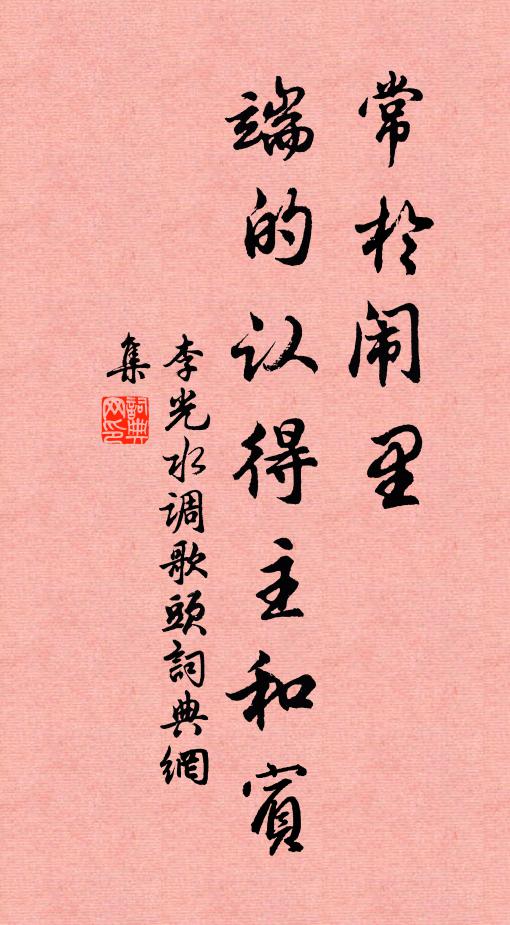 常於闹里
端的认得主和宾
李光水调歌头詞典網
集
詞典网印